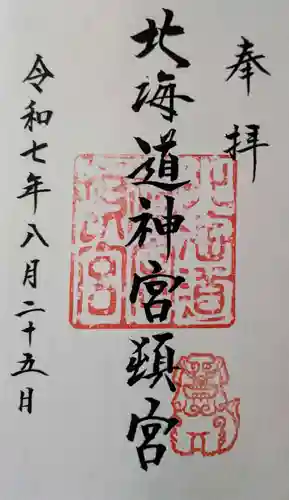 奉拝
北海道神宮頓宮
令和七年八月二十五月
北海道
神宮頓
宮之印